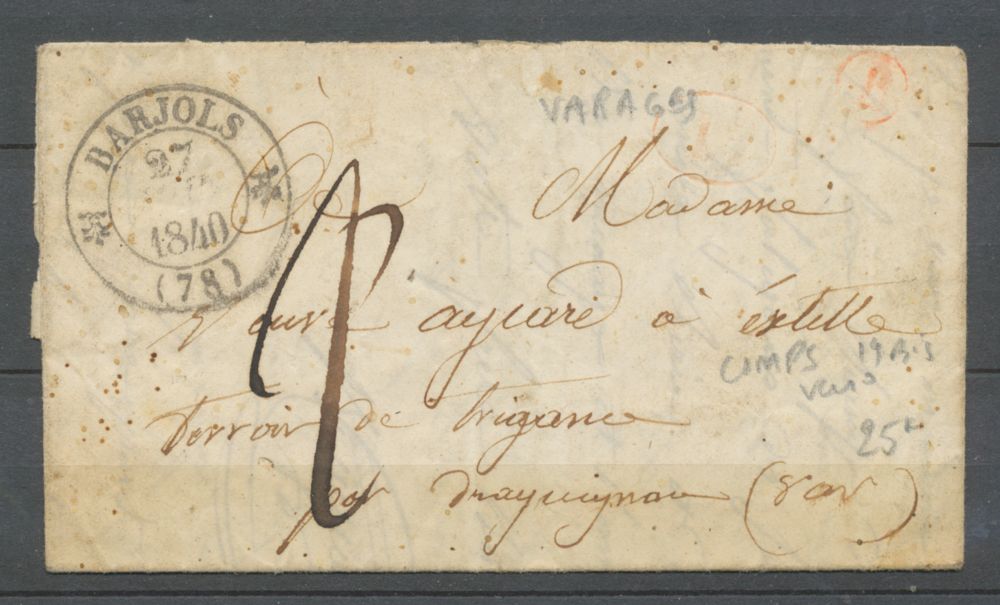 BARJOLS
27
1840
(78)
VARAGES
A Madame
veuve aycard à éstelle
terroir de trigance
par draguignan (var)
COMPS 19 Bis
verso
25€